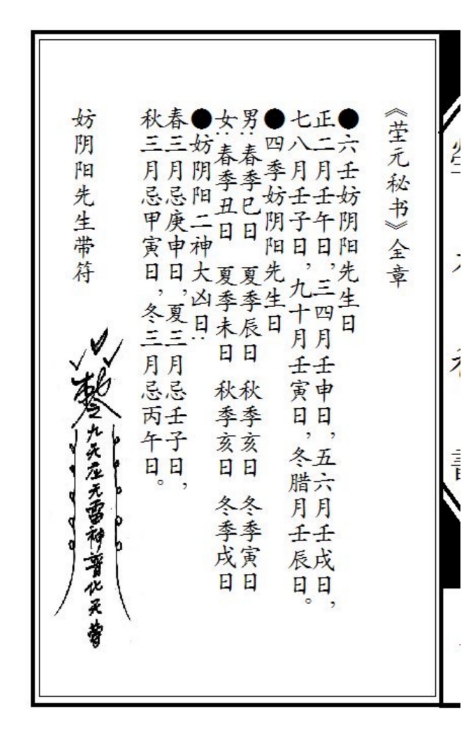 《茔元秘书》全章
●六壬妨阴阳先生日
正二月壬午日，三四月壬申日，五六月壬戌日，
七八月壬子日，九十月壬寅日，冬腊月壬辰日。
●四季妨阴阳先生日
男：春季巳日　夏季辰日　秋季亥日　冬季寅日
女：春季丑日　夏季未日　秋季亥日　冬季戌日
●妨阴阳二神大凶日：
春三月忌庚申日，夏三月忌壬子日，
秋三月忌甲寅日，冬三月忌丙午日。
妨阴阳先生带符
九天应元雷神普化天尊